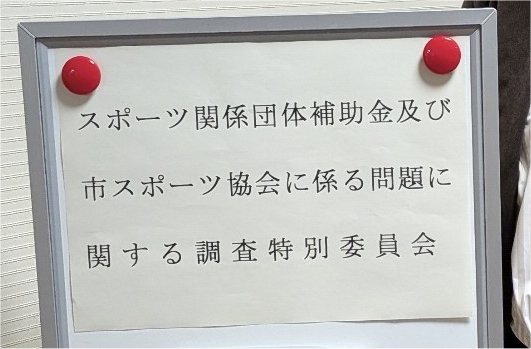 スポーツ関係団体補助金及び
市スポーツ協会に係る問題に
関する調査特別委員会